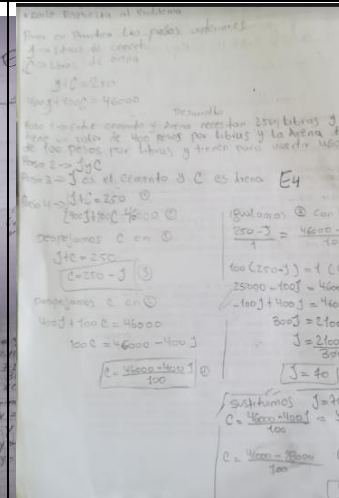 Respuesta al Problema
Poner en Practica los pasos anteriores
J → Libras de cemento
C → Libras de arena
J+C=250
400J+100C=46000
Desarrollo
Paso 1 → entre cemento y Arena necesitan 250 Libras y
tiene un valor de 400 pesos por Libras y La Arena t
de 100 pesos por Libras y tienen para invertir 460
Paso 2 → J y C
Paso 3 → J es el Cemento y C es Arena E4
Paso 4 → J+C=250 ①
400J+100C=46000 ②
Despejamos C en ①
J+C=250
C=250-J ③
Despejamos C en ②
400J+100C=46000
100C=46000-400J
C=46000-400J
100
④
Igualamos ③ con
250-J = 46000-
1 10
100(250-J)=1(
25000-100J=460
-100J+400J=460
300J=2100
J=2100
30
J=70
Sustituimos J=7
C=46000-400J =
100
C=46000-28000
100